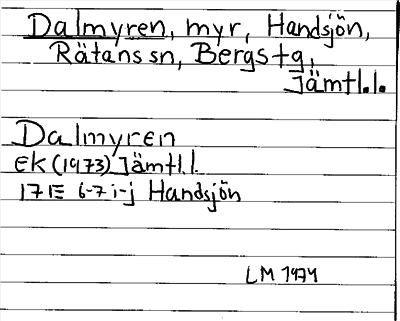 Dalmyren, myr, Handsjön,
Rätans sn, Bergs tg,
Jämtl.l.
Dalmyren
EK (1973) Jämtl.l.
17E 6-7 i-j Handsjön
LM 1974